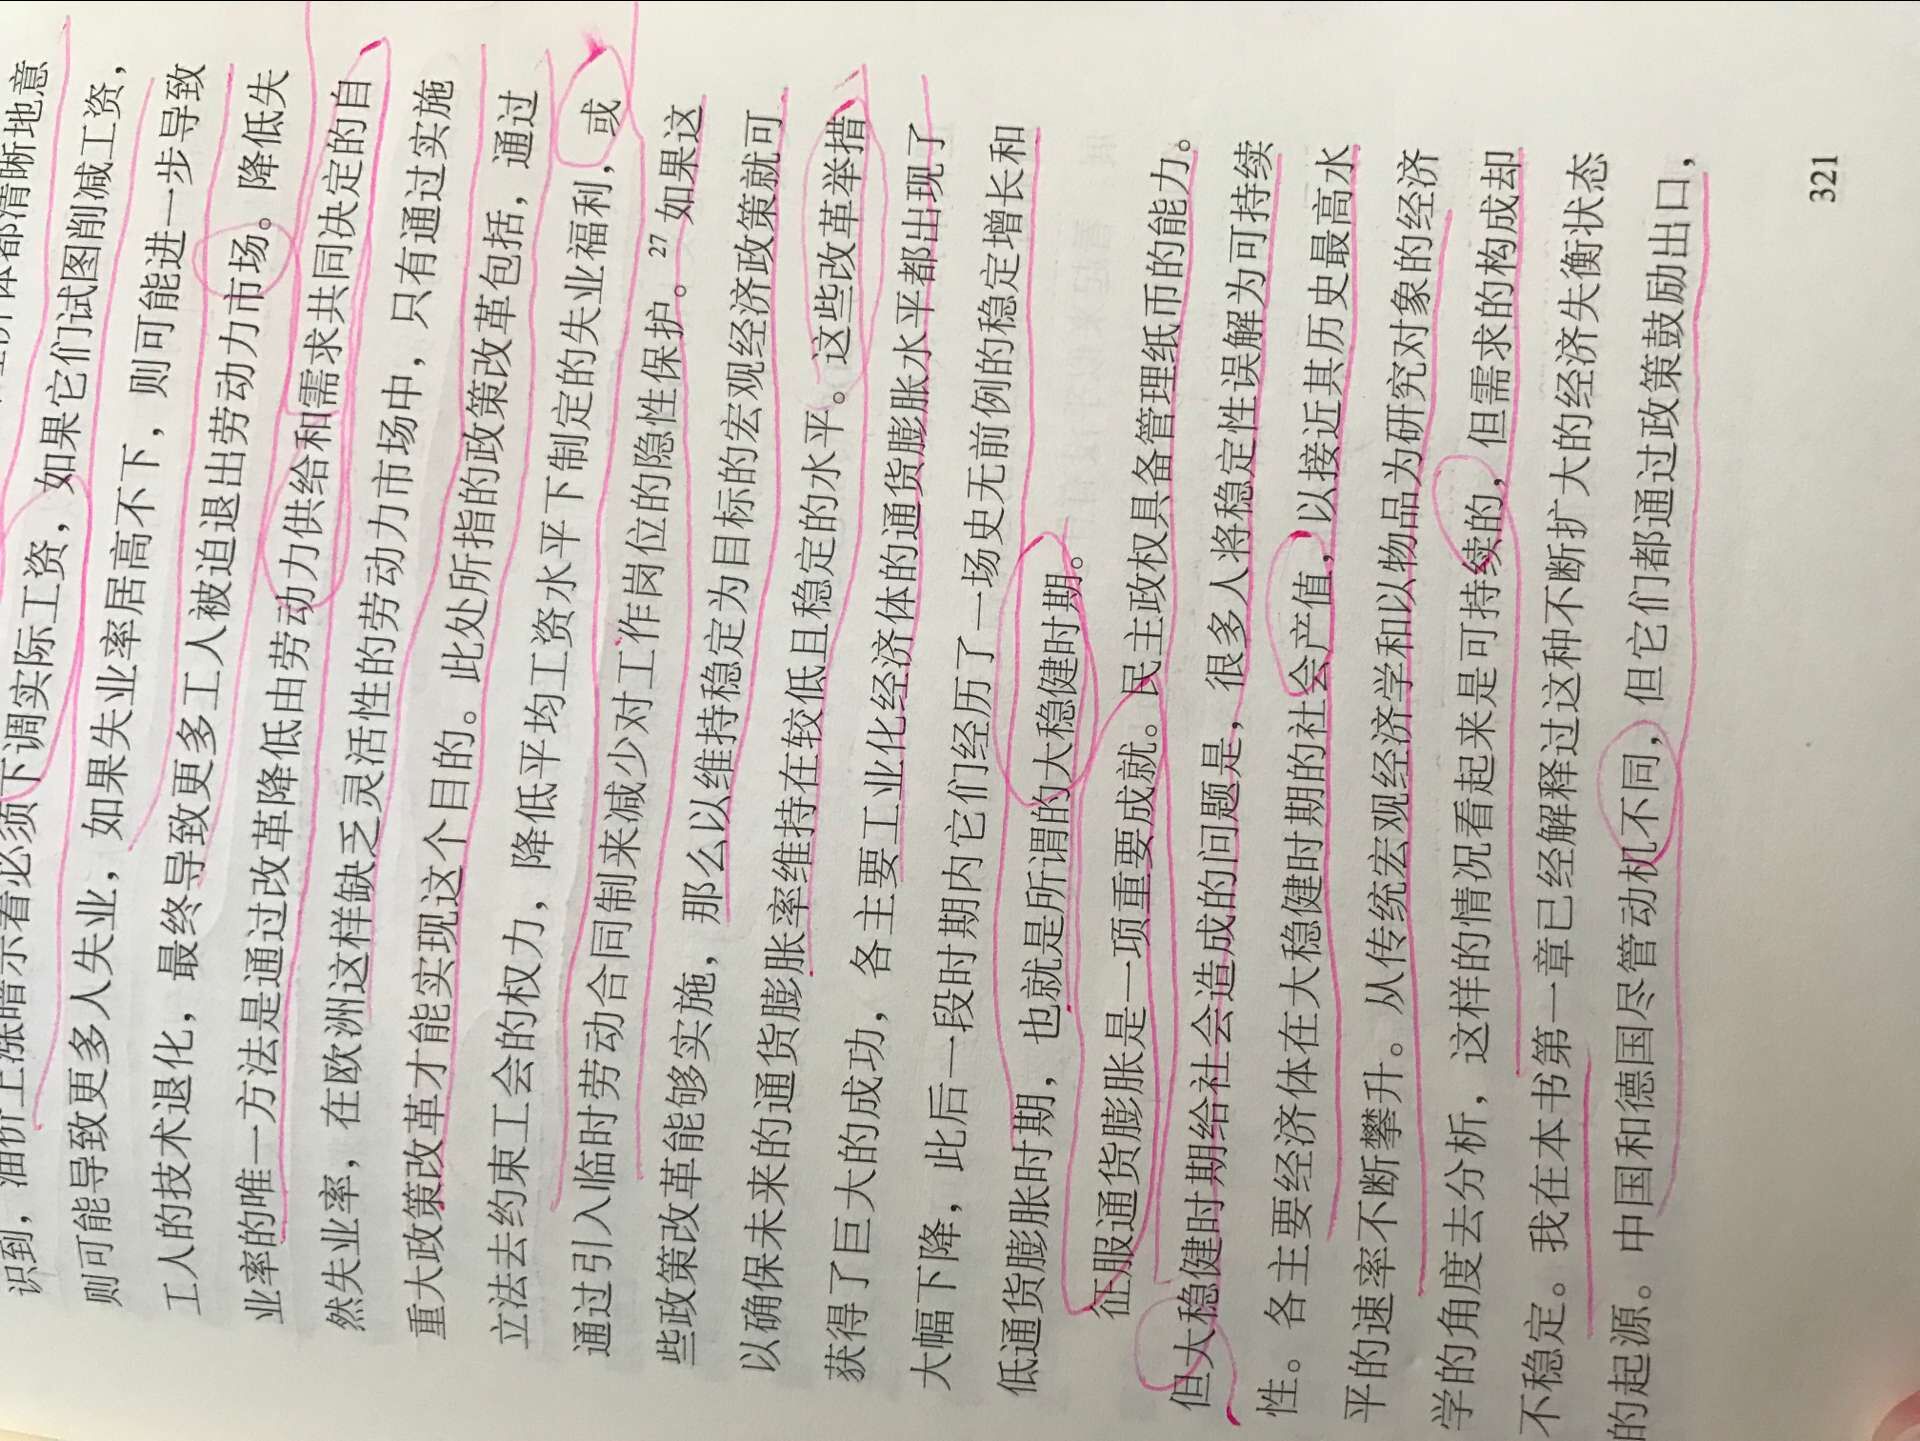 识到，油价上涨暗示着必须下调实际工资，如果它们试图削减工资，
则可能导致更多人失业，如果失业率居高不下，则可能进一步导致
工人的技术退化，最终导致更多工人被迫退出劳动力市场。降低失
业率的唯一方法是通过改革降低由劳动力供给和需求共同决定的自
然失业率，在欧洲这样缺乏灵活性的劳动力市场中，只有通过实施
重大政策改革才能实现这个目的。此处所指的政策改革包括，通过
立法去约束工会的权力，降低平均工资水平下制定的失业福利，或
通过引入临时劳动合同制来减少对工作岗位的隐性保护。27 如果这
些政策改革能够实施，那么以维持稳定为目标的宏观经济政策就可
以确保未来的通货膨胀率维持在较低且稳定的水平。这些改革举措
获得了巨大的成功，各主要工业化经济体的通货膨胀水平都出现了
大幅下降，此后一段时期内它们经历了一场史无前例的稳定增长和
低通货膨胀时期，也就是所谓的大稳健时期。
征服通货膨胀是一项重要成就。民主政权具备管理纸币的能力。
但大稳健时期给社会造成的问题是，很多人将稳定性误解为可持续
性。各主要经济体在大稳健时期的社会产值，以接近其历史最高水
平的速率不断攀升。从传统宏观经济学和以物品为研究对象的经济
学的角度去分析，这样的情况看起来是可持续的，但需求的构成却
不稳定。我在本书第一章已经解释过这种不断扩大的经济失衡状态
的起源。中国和德国尽管动机不同，但它们都通过政策鼓励出口，
321